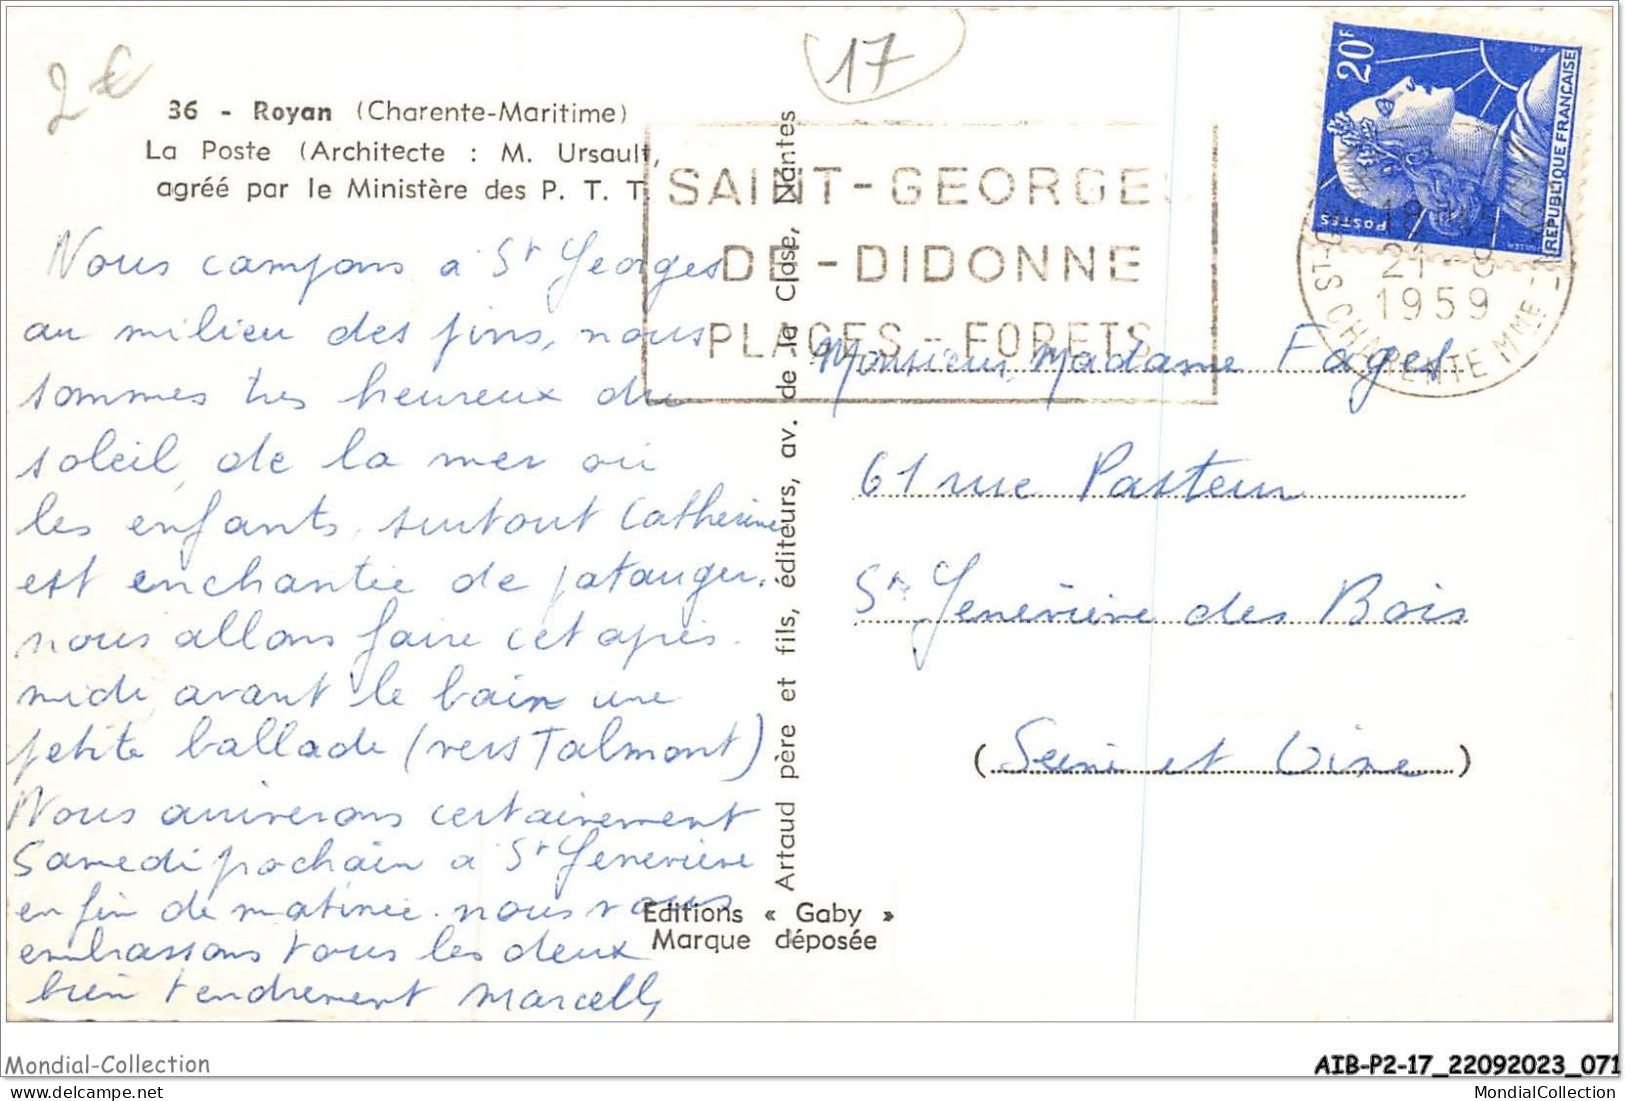 2€
17
36 - Royan (Charente-Maritime)
La Poste (Architecte : M. Ursault,
agréé par le Ministère des P. T. T.
SAINT-GEORGES
DE-DIDONNE
PLAGES - FORETS
20F
POSTES
REPUBLIQUE FRANÇAISE
18 H
21 - 8
1959
CHARENTE MME
Nous campons à St Georges
au milieu des pins, nous
sommes très heureux du
soleil, de la mer où
les enfants, surtout Catherine
est enchantée de patauger.
nous allons faire cet après.
midi, avant le bain une
petite ballade (vers Talmont)
Nous arriverons certainement
Samedi prochain à St Geneviève
en fin de matinée. nous vous
embrassons tous les deux
bien tendrement Marcelle
Artaud père et fils, éditeurs, av. de la Close, Nantes
Editions « Gaby »
Marque déposée
Monsieur, Madame Fages
61 rue Pasteur
Ste Geneviève des Bois
(Seine et Oise)
Mondial-Collection
AIB-P2-17_22092023_071
MondialCollection